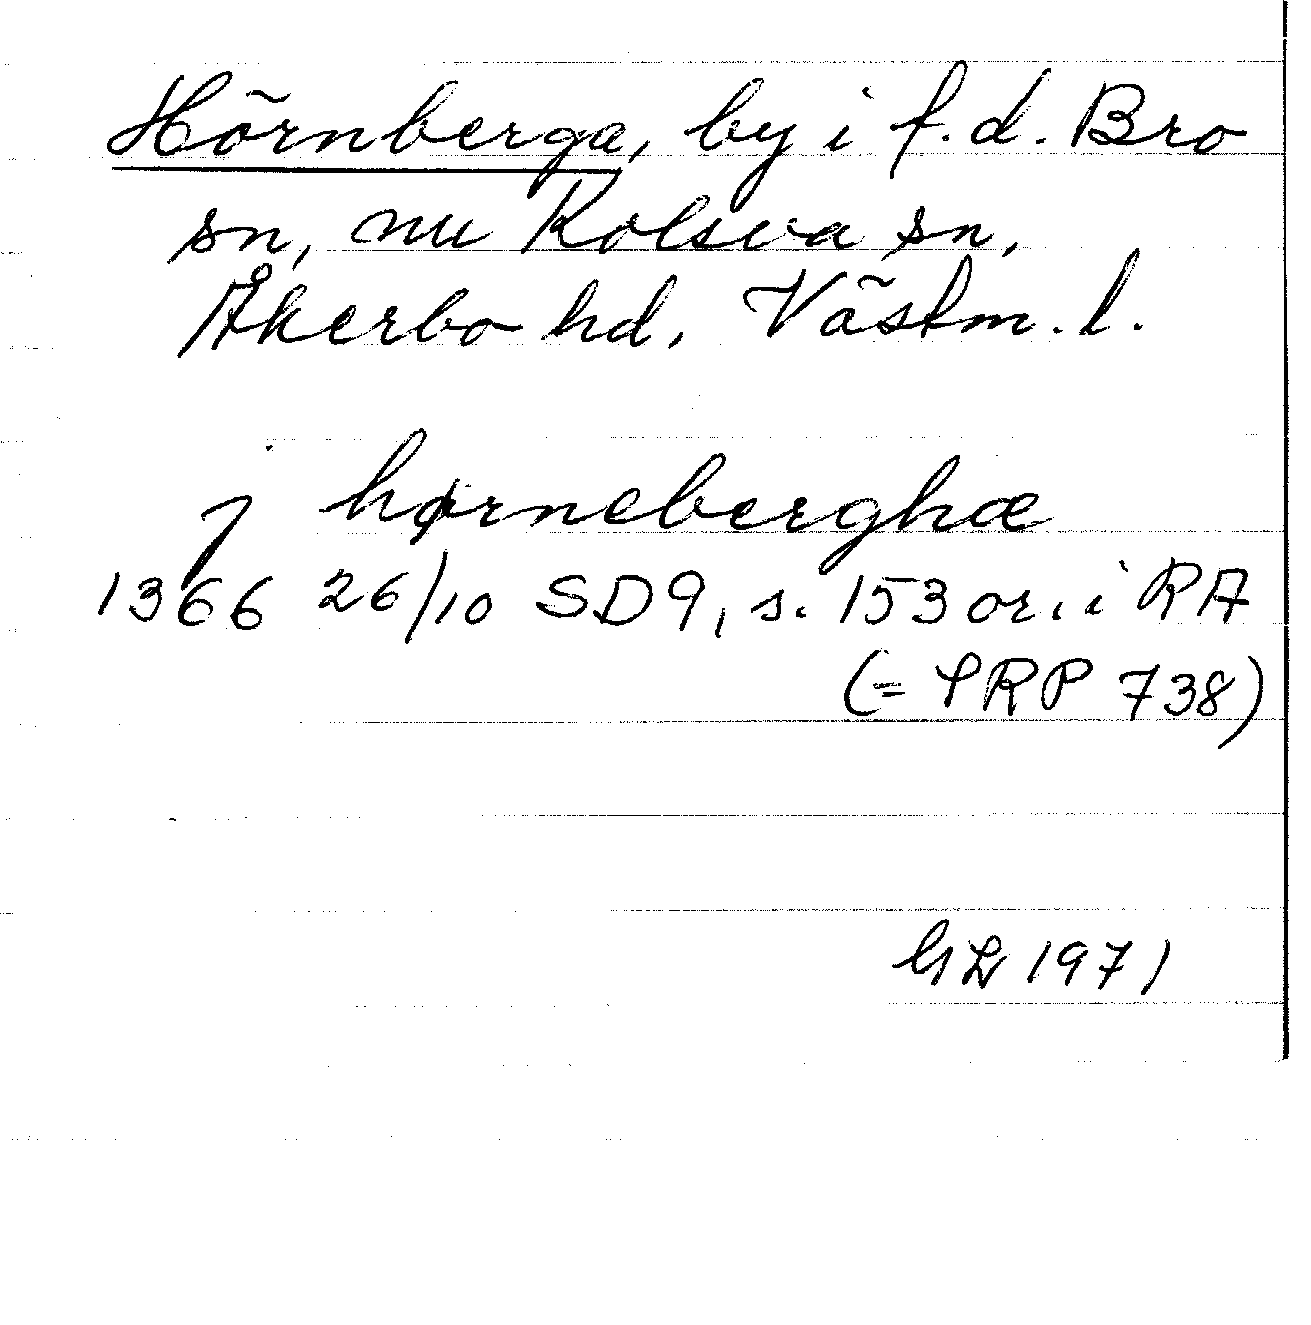 Hörnberga, by i f.d. Bro
sn, nu Kolsva sn,
Åkerbo hd, Västm. l.
j hørneberghæ
1366 26/10 SD9, s. 153 or. i RA
(= SRP 738)
GL 1971